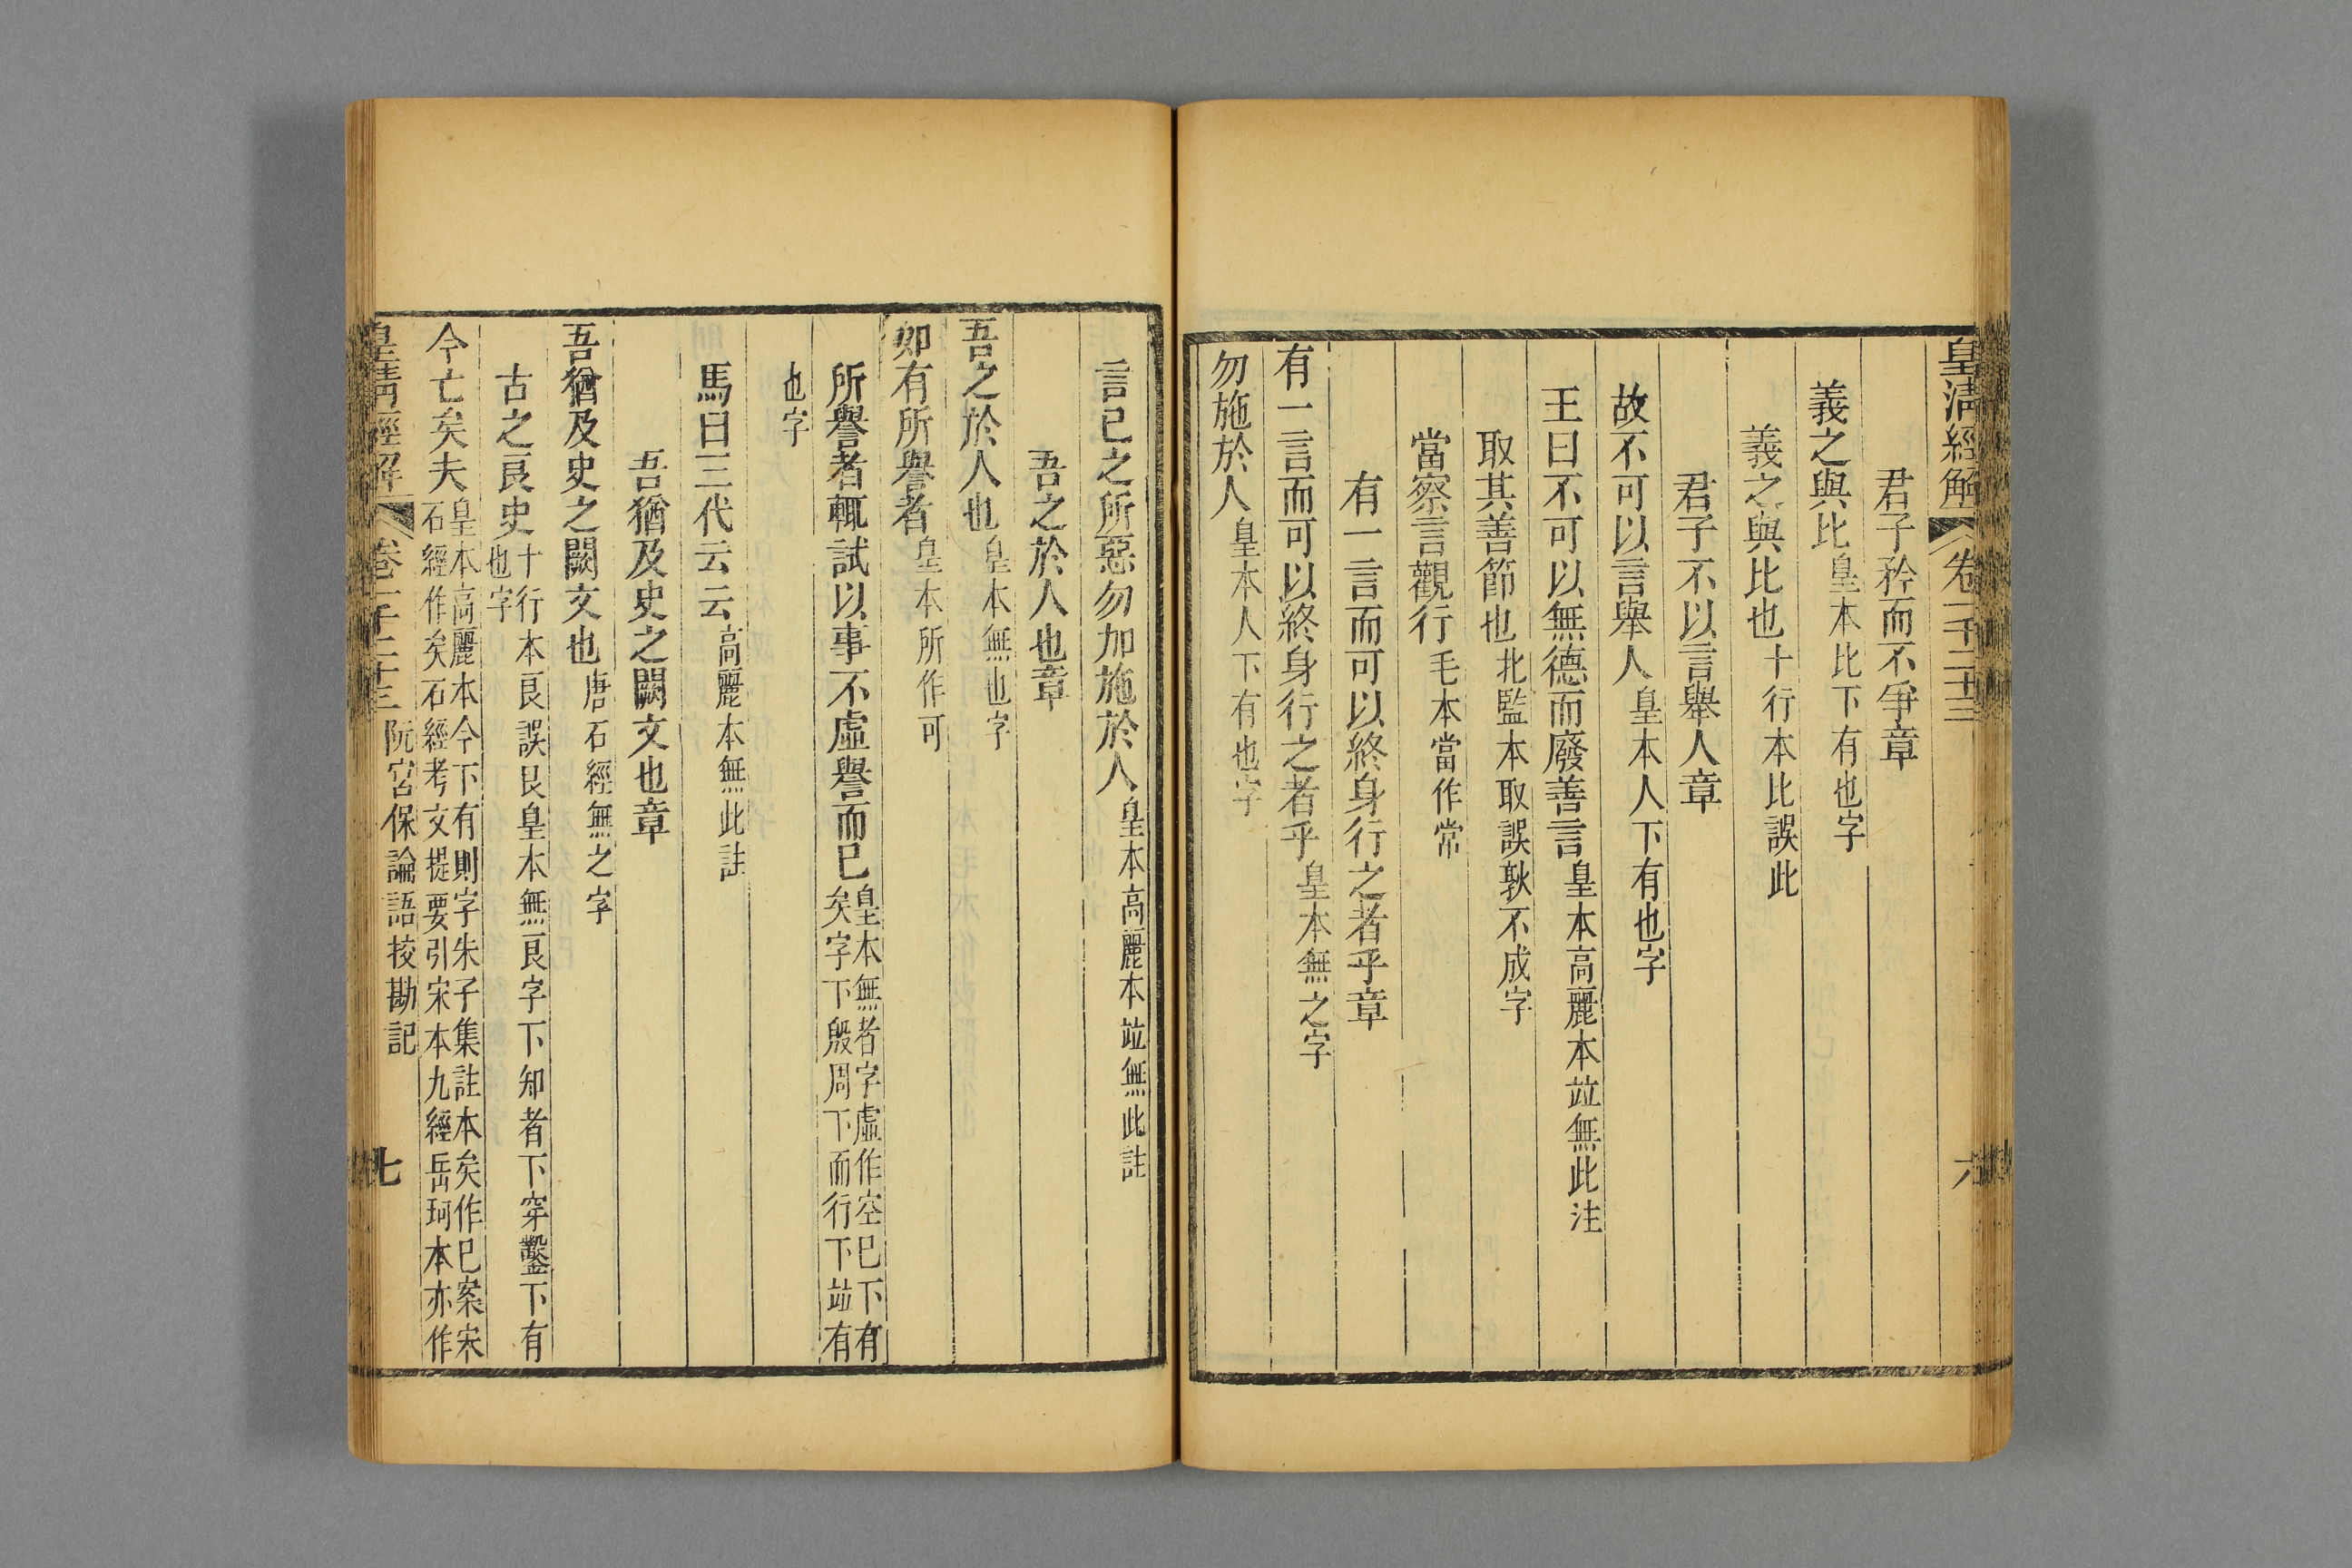 皇清經解 卷一千二十三 六
君子矜而不爭章
義之與比皇本比下有也字
義之與比也十行本比誤此
君子不以言舉人章
故不可以言舉人皇本人下有也字
王曰不可以無德而廢善言皇本高麗本竝無此注
取其善節也北監本取誤㪯不成字
當察言觀行毛本當作常
有一言而可以終身行之者乎章
有一言而可以終身行之者乎皇本無之字
勿施於人皇本人下有也字
言已之所惡勿加施於人皇本高麗本竝無此註
吾之於人也章
吾之於人也皇本無也字
如有所譽者皇本所作可
所譽者輒試以事不虛譽而已皇本無者字虛作空已下有
矣字下殷周下而行下竝有
也字
馬曰三代云云高麗本無此註
吾猶及史之闕文也章
吾猶及史之闕文也唐石經無之字
古之良史十行本良誤艮皇本無良字下知者下穿鑿下有
也字
今亡矣夫皇本高麗本今下有則字朱子集註本矣作已案宋
石經作矣石經考文提要引宋本九經岳珂本亦作
皇清經解 卷一千二十三 阮宮保論語挍勘記 七